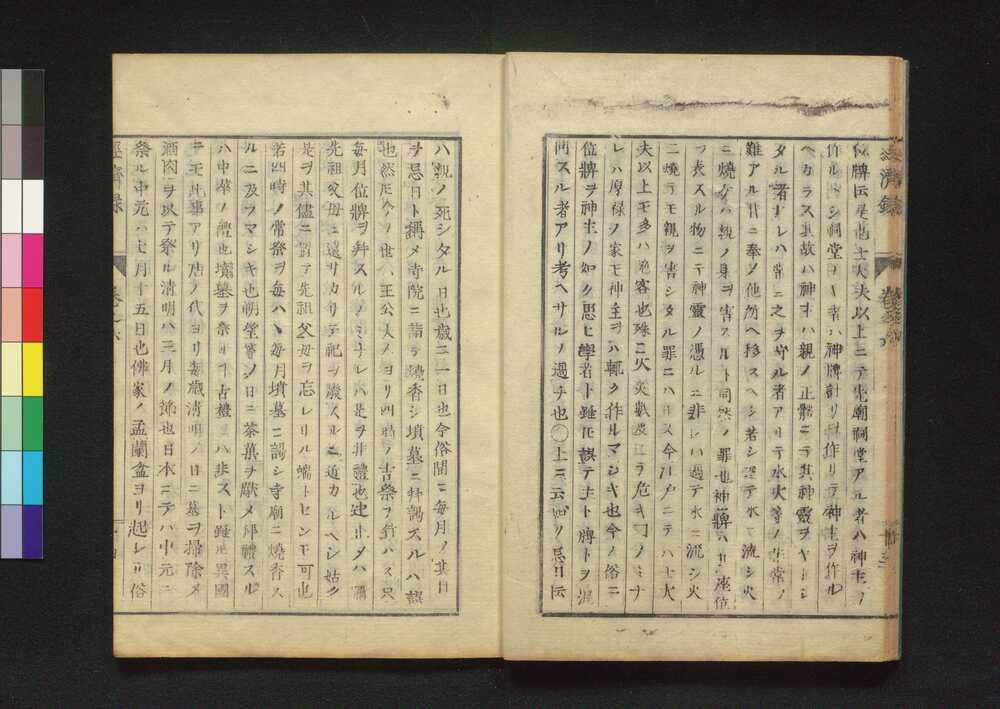 經濟錄 卷之六 十三
位牌云是也士大夫以上ニテ先廟祠堂アル者ハ神主ヲ
作ルヘシ祠堂ナキ者ハ神牌計リヲ作リテ神主ヲ作ル
ヘカラス其故ハ神主ハ親ノ正體ニテ其神靈ヲヤトシ
タル者ナレハ常ニ之ヲ守ル者アリテ水火等ノ非常ノ
難アル時ニ奉シ他所ヘ移スヘシ若シ誤テ水ニ流シ火
ニ燒ケハ親ノ身ヲ害スルト同然ノ罪也神牌ハ只座位
ヲ表スル物ニテ神靈ノ憑ルニ非レハ過テ水ニ流シ火
ニ燒テモ親ヲ害シタル罪ニハ非ス今江戸ニテハ士大
夫以上モ多ハ旅客也殊ニ火災數度ニテ危キ
レハ厚祿ノ家モ神主ヲハ輒ク作ルマシキ也今ノ俗ニ
位牌ヲ神主ノ如ク思ヒ學者ト雖𪜈誤テ主ト牌トヲ混
同スル者アリ考ヘサルノ過チ也○上ニ云如ク忌日云
ハ親ノ死シタル日也歳ニ一日也今俗間ニ毎月ノ其日
ヲ忌日ト稱メ寺院ニ詣テ燒香シ墳墓ニ拜謁スルハ誤
也然𪜈今ノ世ハ王公大人ヨリ四時ノ吉祭ヲ行ハス只
毎月位牌ヲ拜スルノミナレハ是ヲ非禮也迚止メハ彌
先祖父母ニ遠サカリテ祀ヲ廢スルニ近カルヘシ姑ク
是ヲ其儘ニ置テ先祖父母ヲ忘レサル端トセンモ可也
若四時ノ常祭ヲ毎ハ毎月墳墓ニ謁シ寺廟ニ燒香ス
ルニ及フマシキ也朔望等ノ日ニ茶菓ヲ獻メ拜禮スル
ハ中華ノ禮也墳墓ヲ祭ルハ古禮ニハ非スト雖𪜈異國
ニモ此事アリ唐ノ代ヨリ毎歳淸明ノ日ニ墓ヲ掃除メ
酒肉ヲ以テ祭ル淸明ハ三月ノ節也日本ニテハ中元ニ
祭ル中元ハ七月十五日也佛家ノ盂蘭盆ヨリ起レリ俗
經濟錄 卷之六 十四